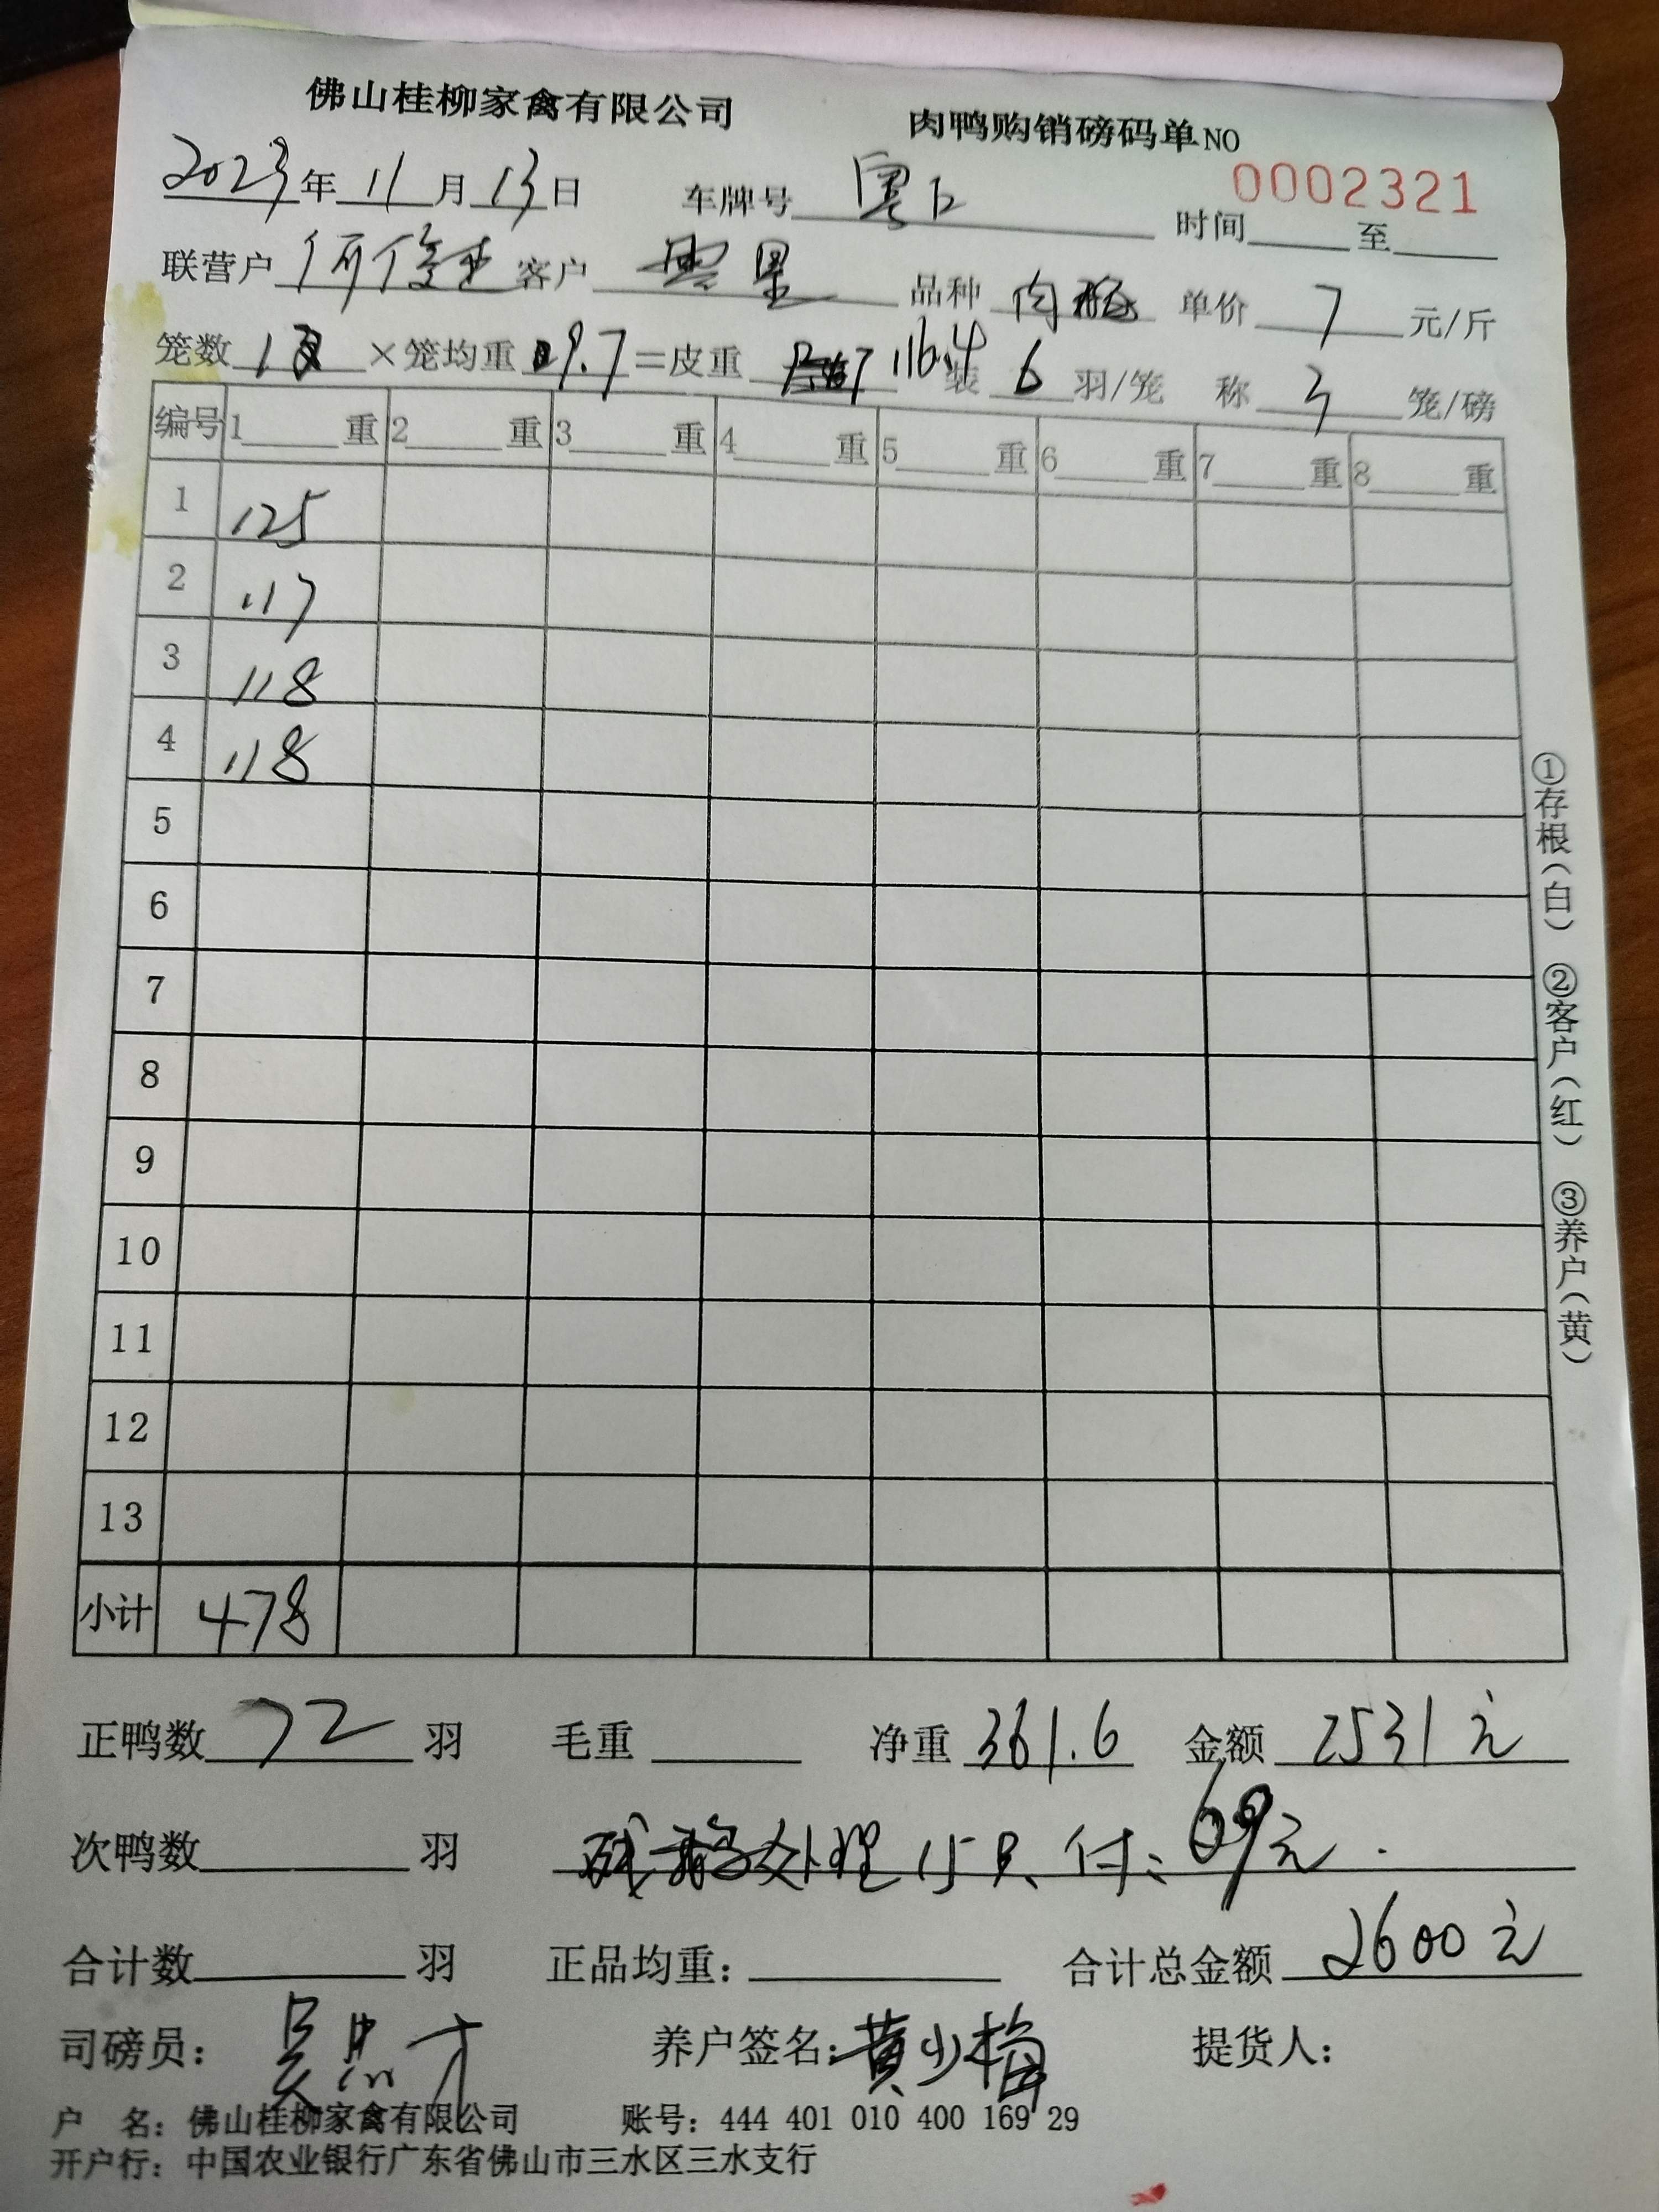 佛山桂柳家禽有限公司 肉鸭购销磅码单NO 0002321
2023年11月13日 车牌号 粤 时间 至
联营户 何 客户 品种 肉 单价 7 元/斤
笼数 12 ×笼均重 9.7 =皮重 116.4 装 6 羽/笼 称 3 笼/磅
编号 1 重 2 重 3 重 4 重 5 重 6 重 7 重 8 重
1 125
2 117
3 118
4 118
5
6
7
8
9
10
11
12
13
小计 478
①存根(白) ②客户(红) ③养户(黄)
正鸭数 72 羽 毛重 净重 361.6 金额 2531元
次鸭数 羽 残鸭处理15只 付:69元.
合计数 羽 正品均重: 合计总金额 2600元
司磅员: 养户签名:黄少梅 提货人:
户 名:佛山桂柳家禽有限公司 账号:444 401 010 400 169 29
开户行:中国农业银行广东省佛山市三水区三水支行